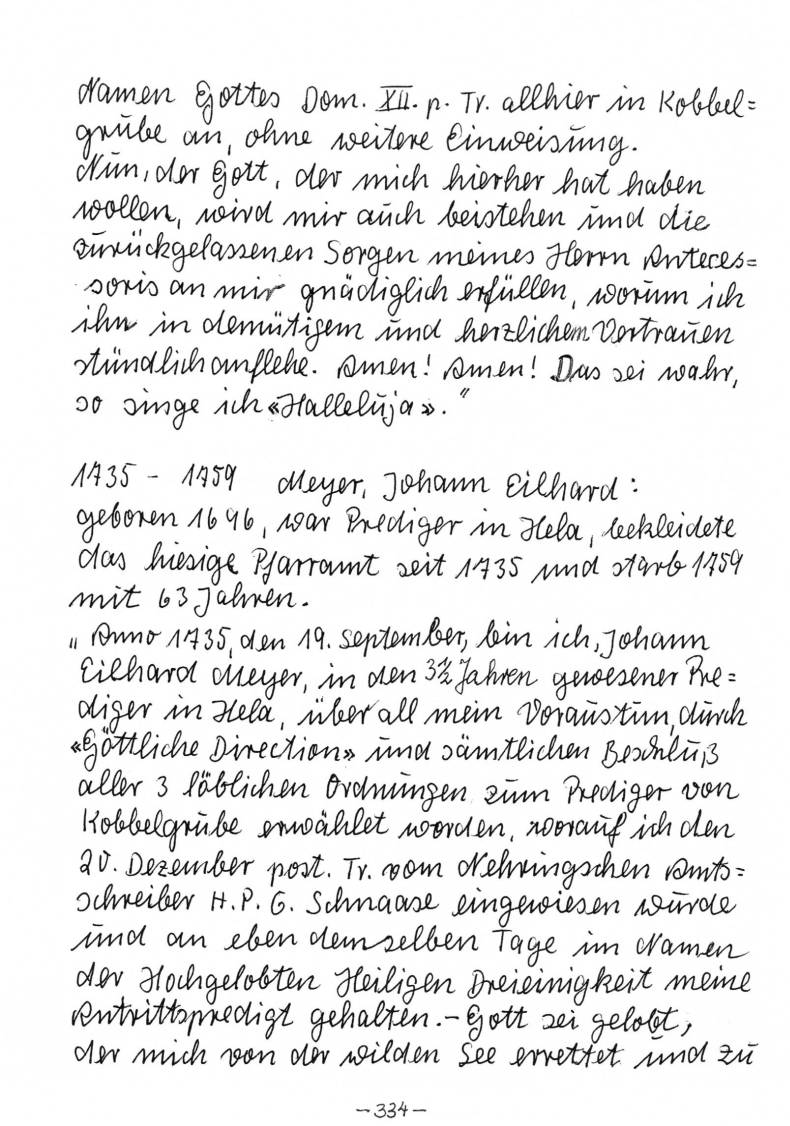 Namen Gottes Dom. XII. p. Tr. allhier in Kobbel=
grube an, ohne weitere Einweisung.
Nun, der Gott, der mich hierher hat haben
wollen, wird mir auch beistehen und die
zurückgelassenen Sorgen meines Herrn Anteces=
soris an mir gnädiglich erfüllen, worum ich
ihn in demütigem und herzlichem Vertrauen
stündlich anflehe. Amen! Amen! Das sei wahr,
so singe ich «Halleluja»."
1735 - 1759 Meyer, Johann Eilhard:
geboren 1696, war Prediger in Hela, bekleidete
das hiesige Pfarramt seit 1735 und starb 1759
mit 63 Jahren.
"Anno 1735, den 19. September, bin ich, Johann
Eilhard Meyer, in den 3½ Jahren gewesener Pre=
diger in Hela, über all mein Voraustun, durch
«Göttliche Direction» und sämtlichen Beschluß
aller 3 löblichen Ordnungen zum Prediger von
Kobbelgrube erwählet worden, worauf ich den
20. Dezember post. Tr. vom Nehringschen Amts=
schreiber H. P. G. Schnaase eingewiesen wurde
und an eben demselben Tage im Namen
der Hochgelobten Heiligen Dreieinigkeit meine
Antrittspredigt gehalten. - Gott sei gelobt,
der mich von der wilden See errettet und zu
- 334 -